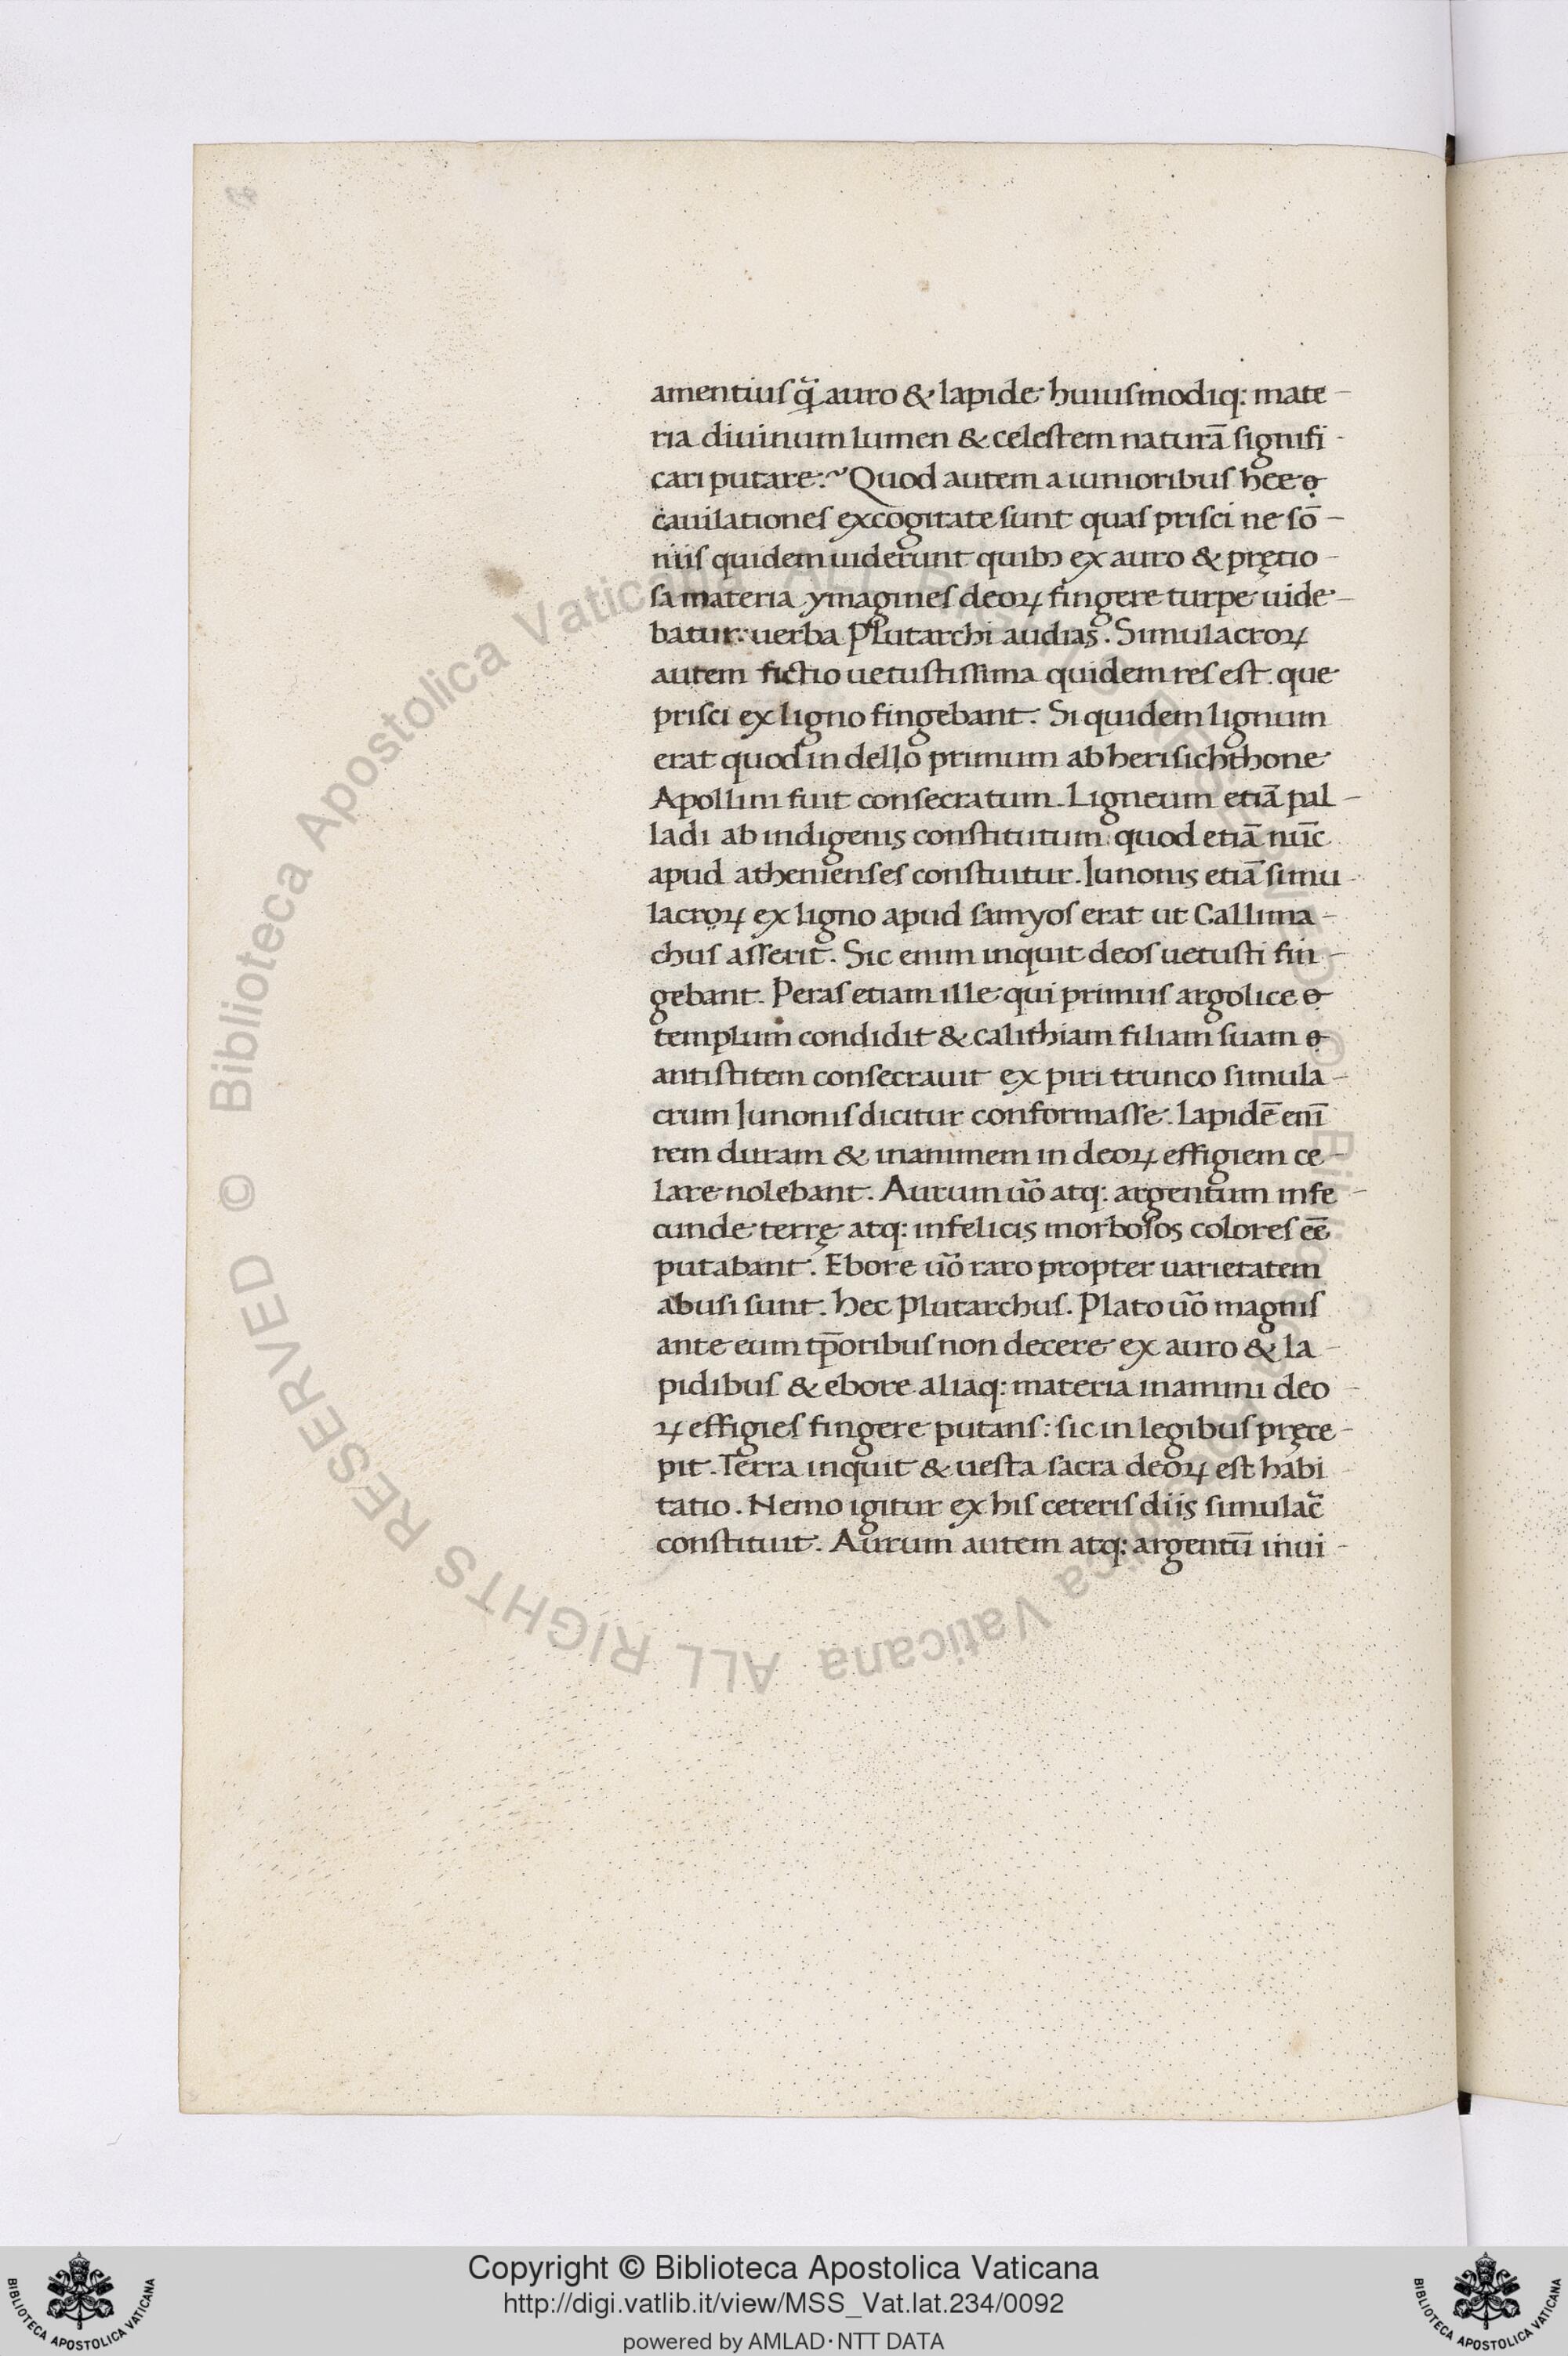 amentius q̃ auro & lapide huiusmodiq: mate-
ria diuinum lumen & celestem naturã signifi-
cari putare. Quod autem a iunioribus hee
cauilationes excogitate sunt quas prisci ne sõ-
niis quidem uiderunt quibꝫ ex auro & pretio-
sa materia ymagines deoꝝ fingere turpe uide-
batur: uerba Plutarchi audias. Simulacroꝝ
autem fictio uetustissima quidem res est. que
prisci ex ligno fingebant. Si quidem lignum
erat quod in dello primum ab herisichthone
Apollini fuit consecratum. Ligneum etiã pal-
ladi ab indigenis constitutum quod etiã nũc
apud athenienses constuitur. Iunonis etiã simu-
lacroꝝ ex ligno apud samyos erat ut Callima-
chus asserit. Sic enim inquit deos uetusti fin-
gebant. Peras etiam ille qui primus argolice
templum condidit & calithiam filiam suam
antistitem consecrauit ex piri trunco simula-
crum Iunonis dicitur conformasse. Lapidẽ enĩ
rem duram & inanimem in deoꝝ effigiem ce-
lare nolebant. Aurum ũo atq: argentum infe-
cunde terrę atq: infelicis morbosos colores eẽ
putabant. Ebore ũo raro propter uarietatem
abusi sunt. Hec Plutarchus. Plato ũo magnis
ante eum tp̃oribus non decere ex auro & la-
pidibus & ebore aliaq: materia inanimi deo-
ꝝ effigies fingere putans: sic in legibus pręce-
pit. Terra inquit & uesta sacra deoꝝ est habi-
tatio. Nemo igitur ex his ceteris diis simulac̃
constituit. Aurum autem atq: argentũ inui-
© Biblioteca Apostolica Vaticana ALL RIGHTS RESERVED © Biblioteca Apostolica Vaticana ALL RIGHTS RESERVED
Copyright © Biblioteca Apostolica Vaticana
http://digi.vatlib.it/view/MSS_Vat.lat.234/0092
powered by AMLAD·NTT DATA
BIBLIOTECA APOSTOLICA VATICANA
BIBLIOTECA APOSTOLICA VATICANA